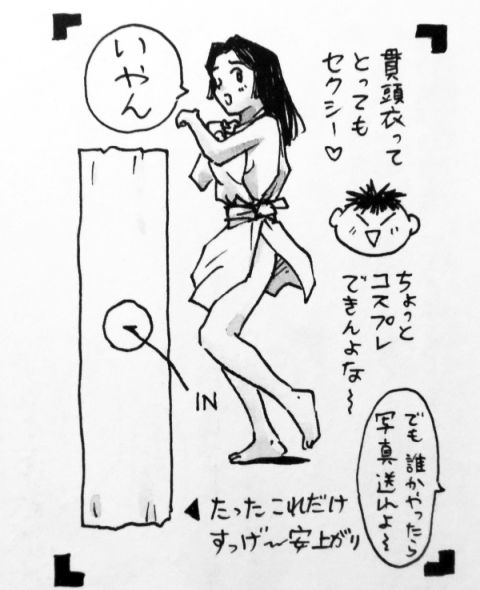 貫頭衣って
とっても
セクシー♡
いやん
ちょっと
コスプレ
できんよな〜
IN
でも誰かやったら
写真送れよ〜
◀たったこれだけ
すっげ〜安上がり